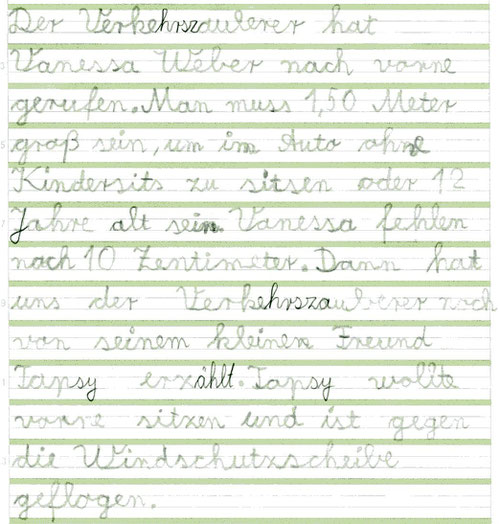 Der Verkehrszauberer hat
Vanessa Weber nach vorne
gerufen. Man muss 1,50 Meter
groß sein, um im Auto ohne
Kindersits zu sitsen oder 12
Jahre alt sein. Vanessa fehlen
noch 10 Zentimeter. Dann hat
uns der Verkehrszauberer noch
von seinem kleinen Freund
Tapsy erzählt. Tapsy wollte
vorne sitzen und ist gegen
die Windschutzscheibe
geflogen.